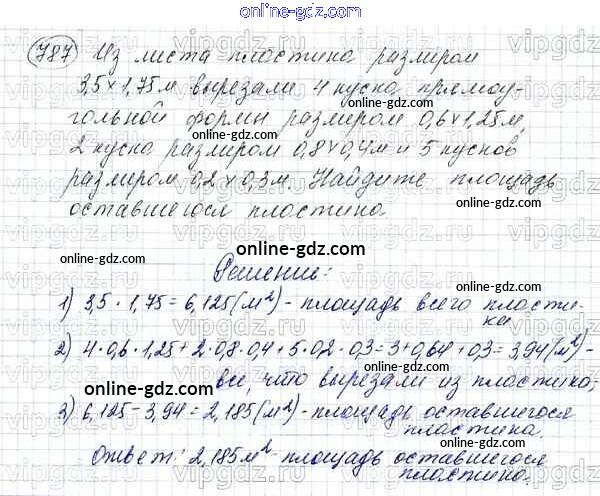 online-gdz.com
787 Из листа пластика размером
3,5 × 1,75 м вырезали 4 куска прямоу-
online-gdz.com
гольной формы размером 0,6 × 1,25 м,
2 куска размером 0,8 × 0,4 м и 5 кусков
online-gdz.com
размером 0,2 × 0,3 м. Найдите площадь
оставшегося пластика.
online-gdz.com
Решение:
1) 3,5 · 1,75 = 6,125 (м²) - площадь всего пласти-
ка
online-gdz.com
2) 4 · 0,6 · 1,25 + 2 · 0,8 · 0,4 + 5 · 0,2 · 0,3 = 3 + 0,64 + 0,3 = 3,94 (м²) -
все, что вырезали из пластика;
online-gdz.com
3) 6,125 - 3,94 = 2,185 (м²) - площадь оставшегося
пластика.
online-gdz.com
Ответ: 2,185 м² - площадь оставшегося
пластика.
online-gdz.com